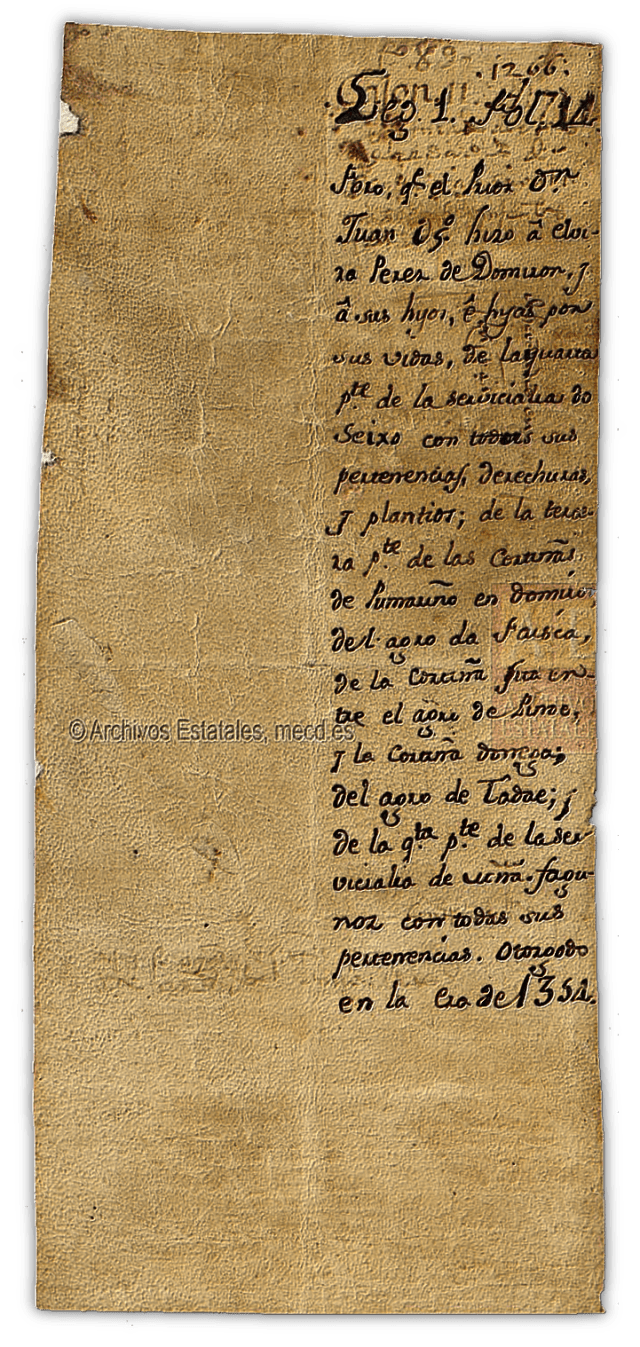 .1266.
Leg. 1. fol. 14.
Foro, q.e el Prior D.n
Juan Is.o hizo â elvi-
ra Perez de Domiron, y
â sus hijos, ê hijas por
sus vidas, de la quarta
p.te de la servicialia do
Seixo con todas sus
pertenencias, derechuras,
y plantios; de la terce-
ra p.te de las Cortiñas
de Pumariño en domiron,
del agro da Faisca,
de la Cortiña sita en-
tre el agro de
y la Cortiña domega;
del agro de Tadae; y
de la q.ta p.te de la ser
vicialia de viña. fagu-
noz con todas sus
pertenencias. Otorgado
en la Era de 1354.
© Archivos Estatales, mecd.es